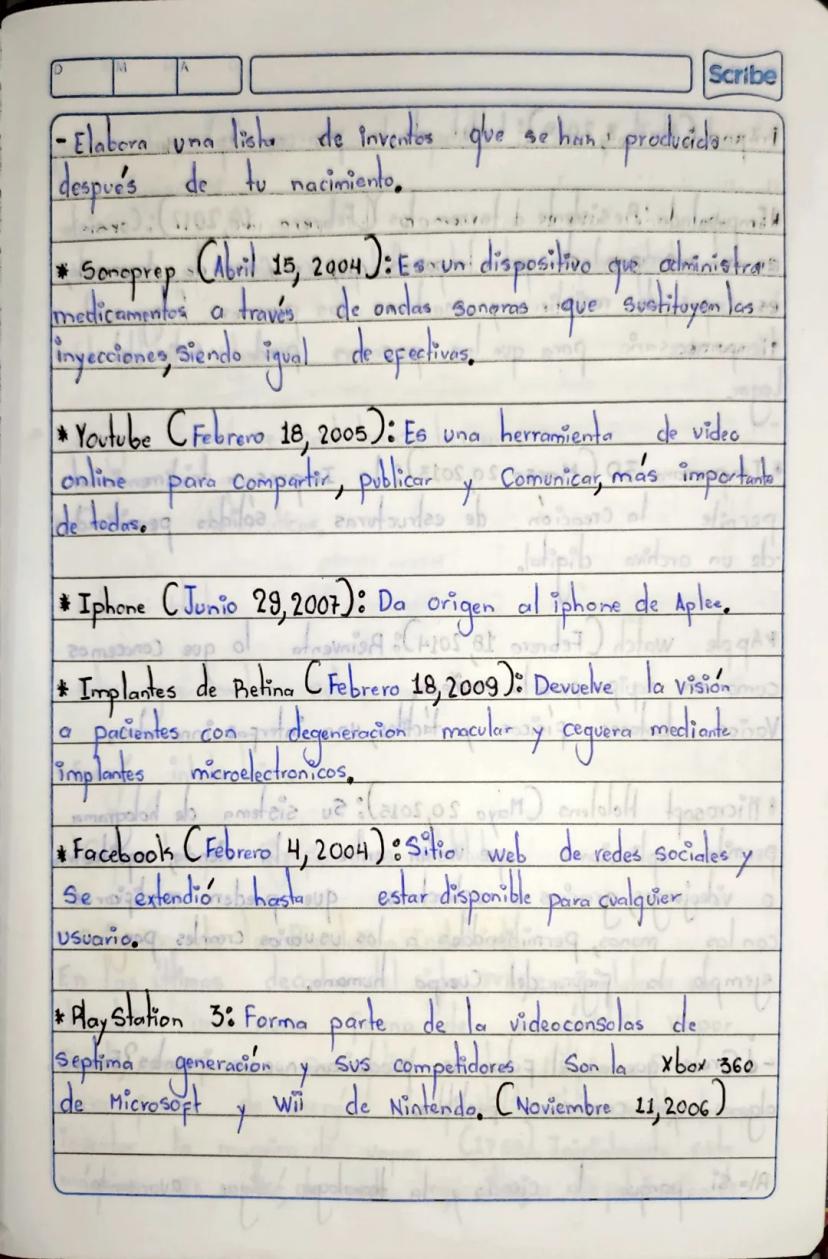 D M A
Scribe
- Elabora una lista de inventos que se han producido
después de tu nacimiento.
* Sonoprep (Abril 15, 2004): Es un dispositivo que administra
medicamentos a través de ondas sonoras que sustituyen las
inyecciones, siendo igual de efectivas.
* Youtube (Febrero 18, 2005): Es una herramienta de video
online para compartir, publicar y comunicar, más importante
de todas.
* Iphone (Junio 29, 2007): Da origen al iphone de Aplee.
* Implantes de Retina (Febrero 18, 2009): Devuelve la visión
a pacientes con degeneracion macular y ceguera mediante
implantes microelectronicos.
* Facebook (Febrero 4, 2004): Sitio web de redes sociales y
se extendió hasta estar disponible para cualquier
usuario.
* PlayStation 3: Forma parte de la videoconsolas de
septima generación y sus competidores son la xbox 360
de Microsoft y Wii de Nintendo. (Noviembre 11, 2006)